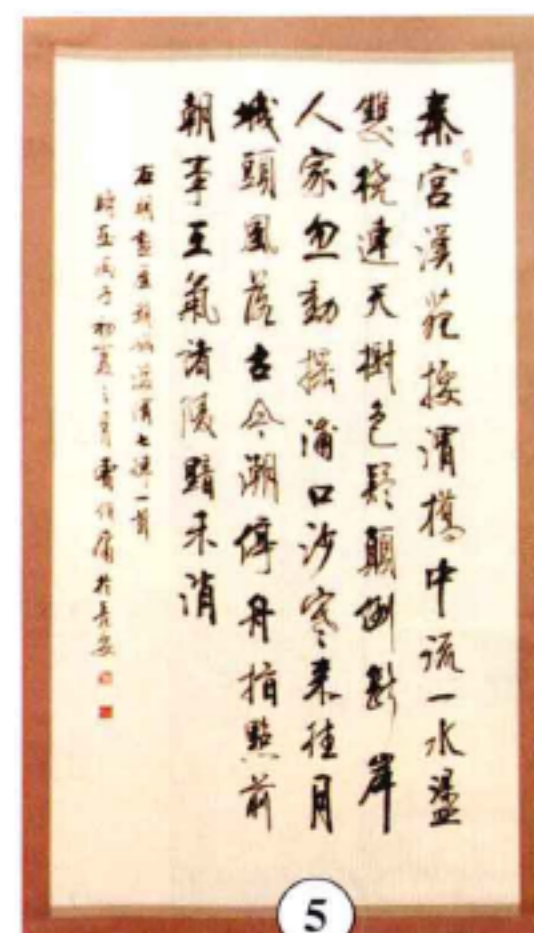 秦宫漢苑接渭橋中流一水盪
雙橈連天樹色疑顛倒斷岸
人家忽動搖浦口沙寒來往月
城頭風落古今潮停舟指點前
朝事王氣諸陵黯未消
右明渭七律一首
時丙子初夏之月曹伯庸於長安
5